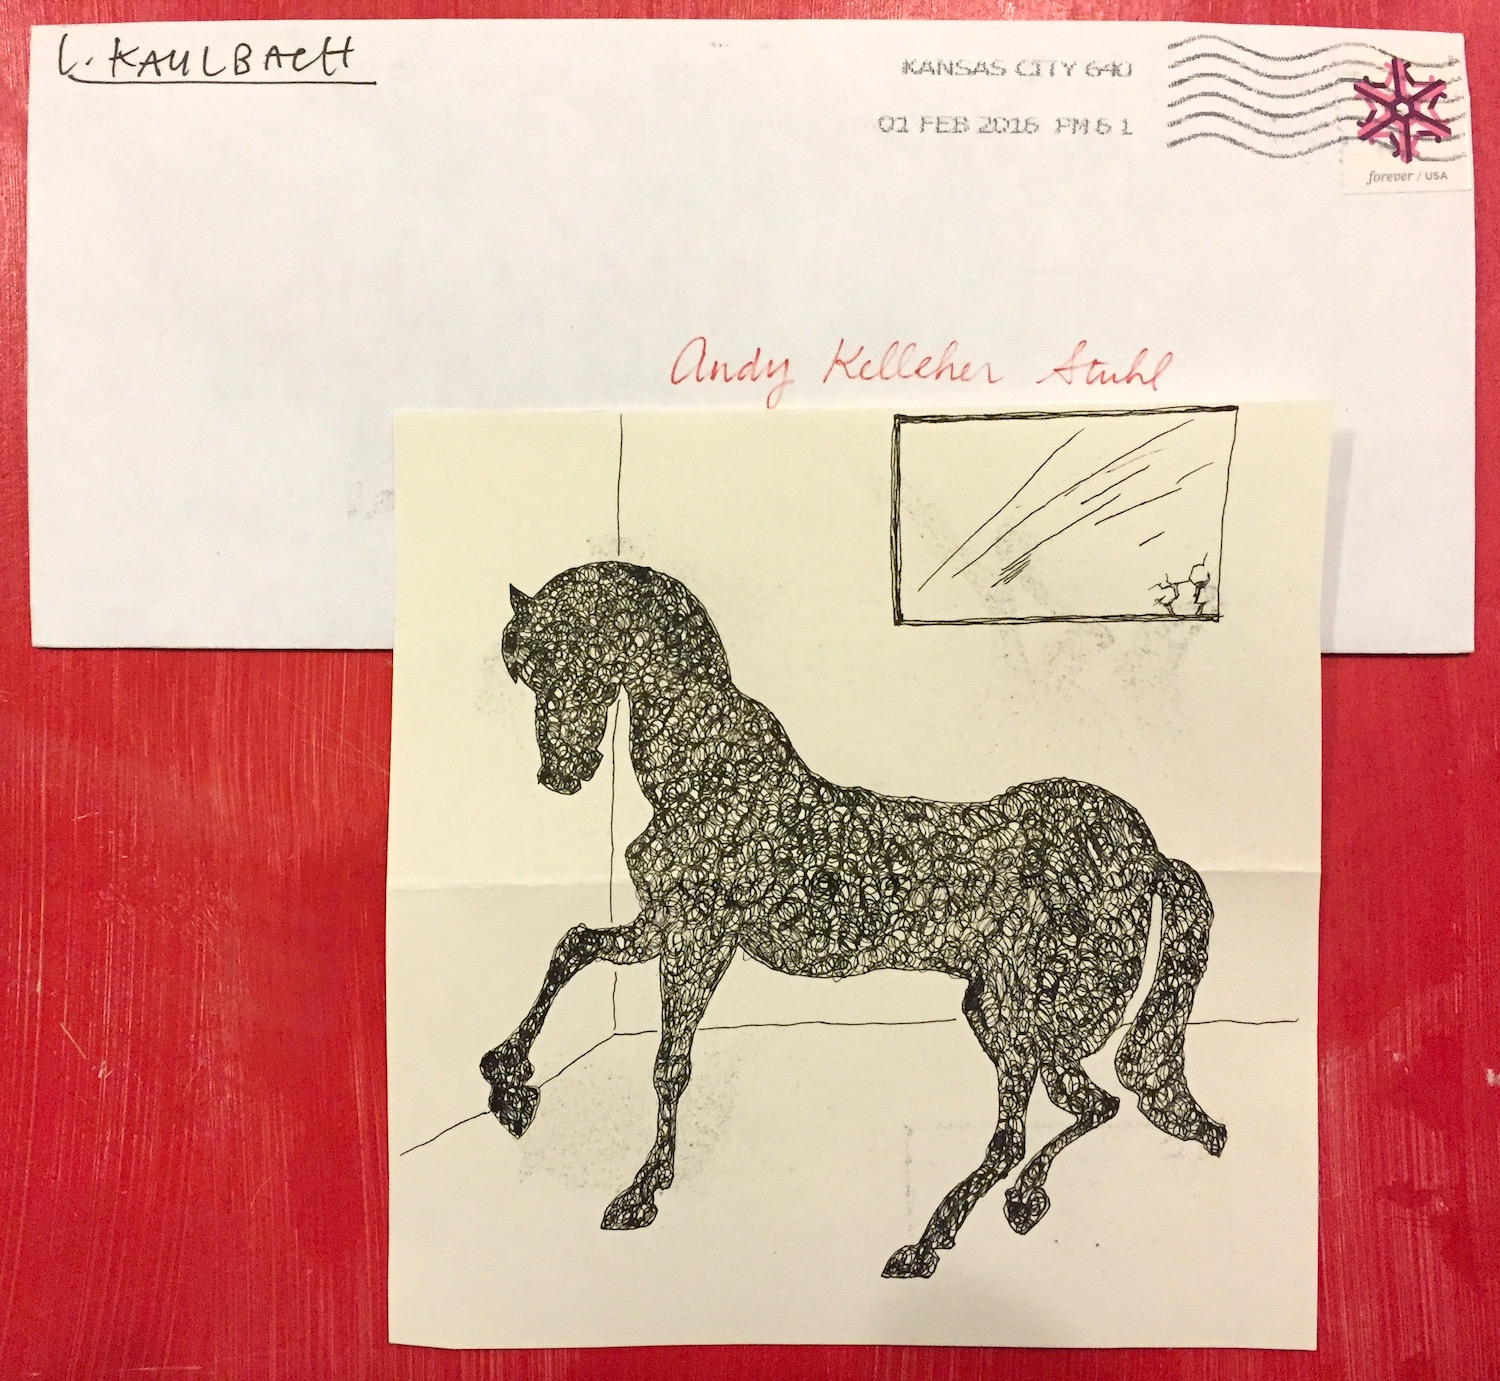 L. KAULBACH
KANSAS CITY 640
01 FEB 2016 PM 6 L
forever / USA
Andy Kelleher Stuhl